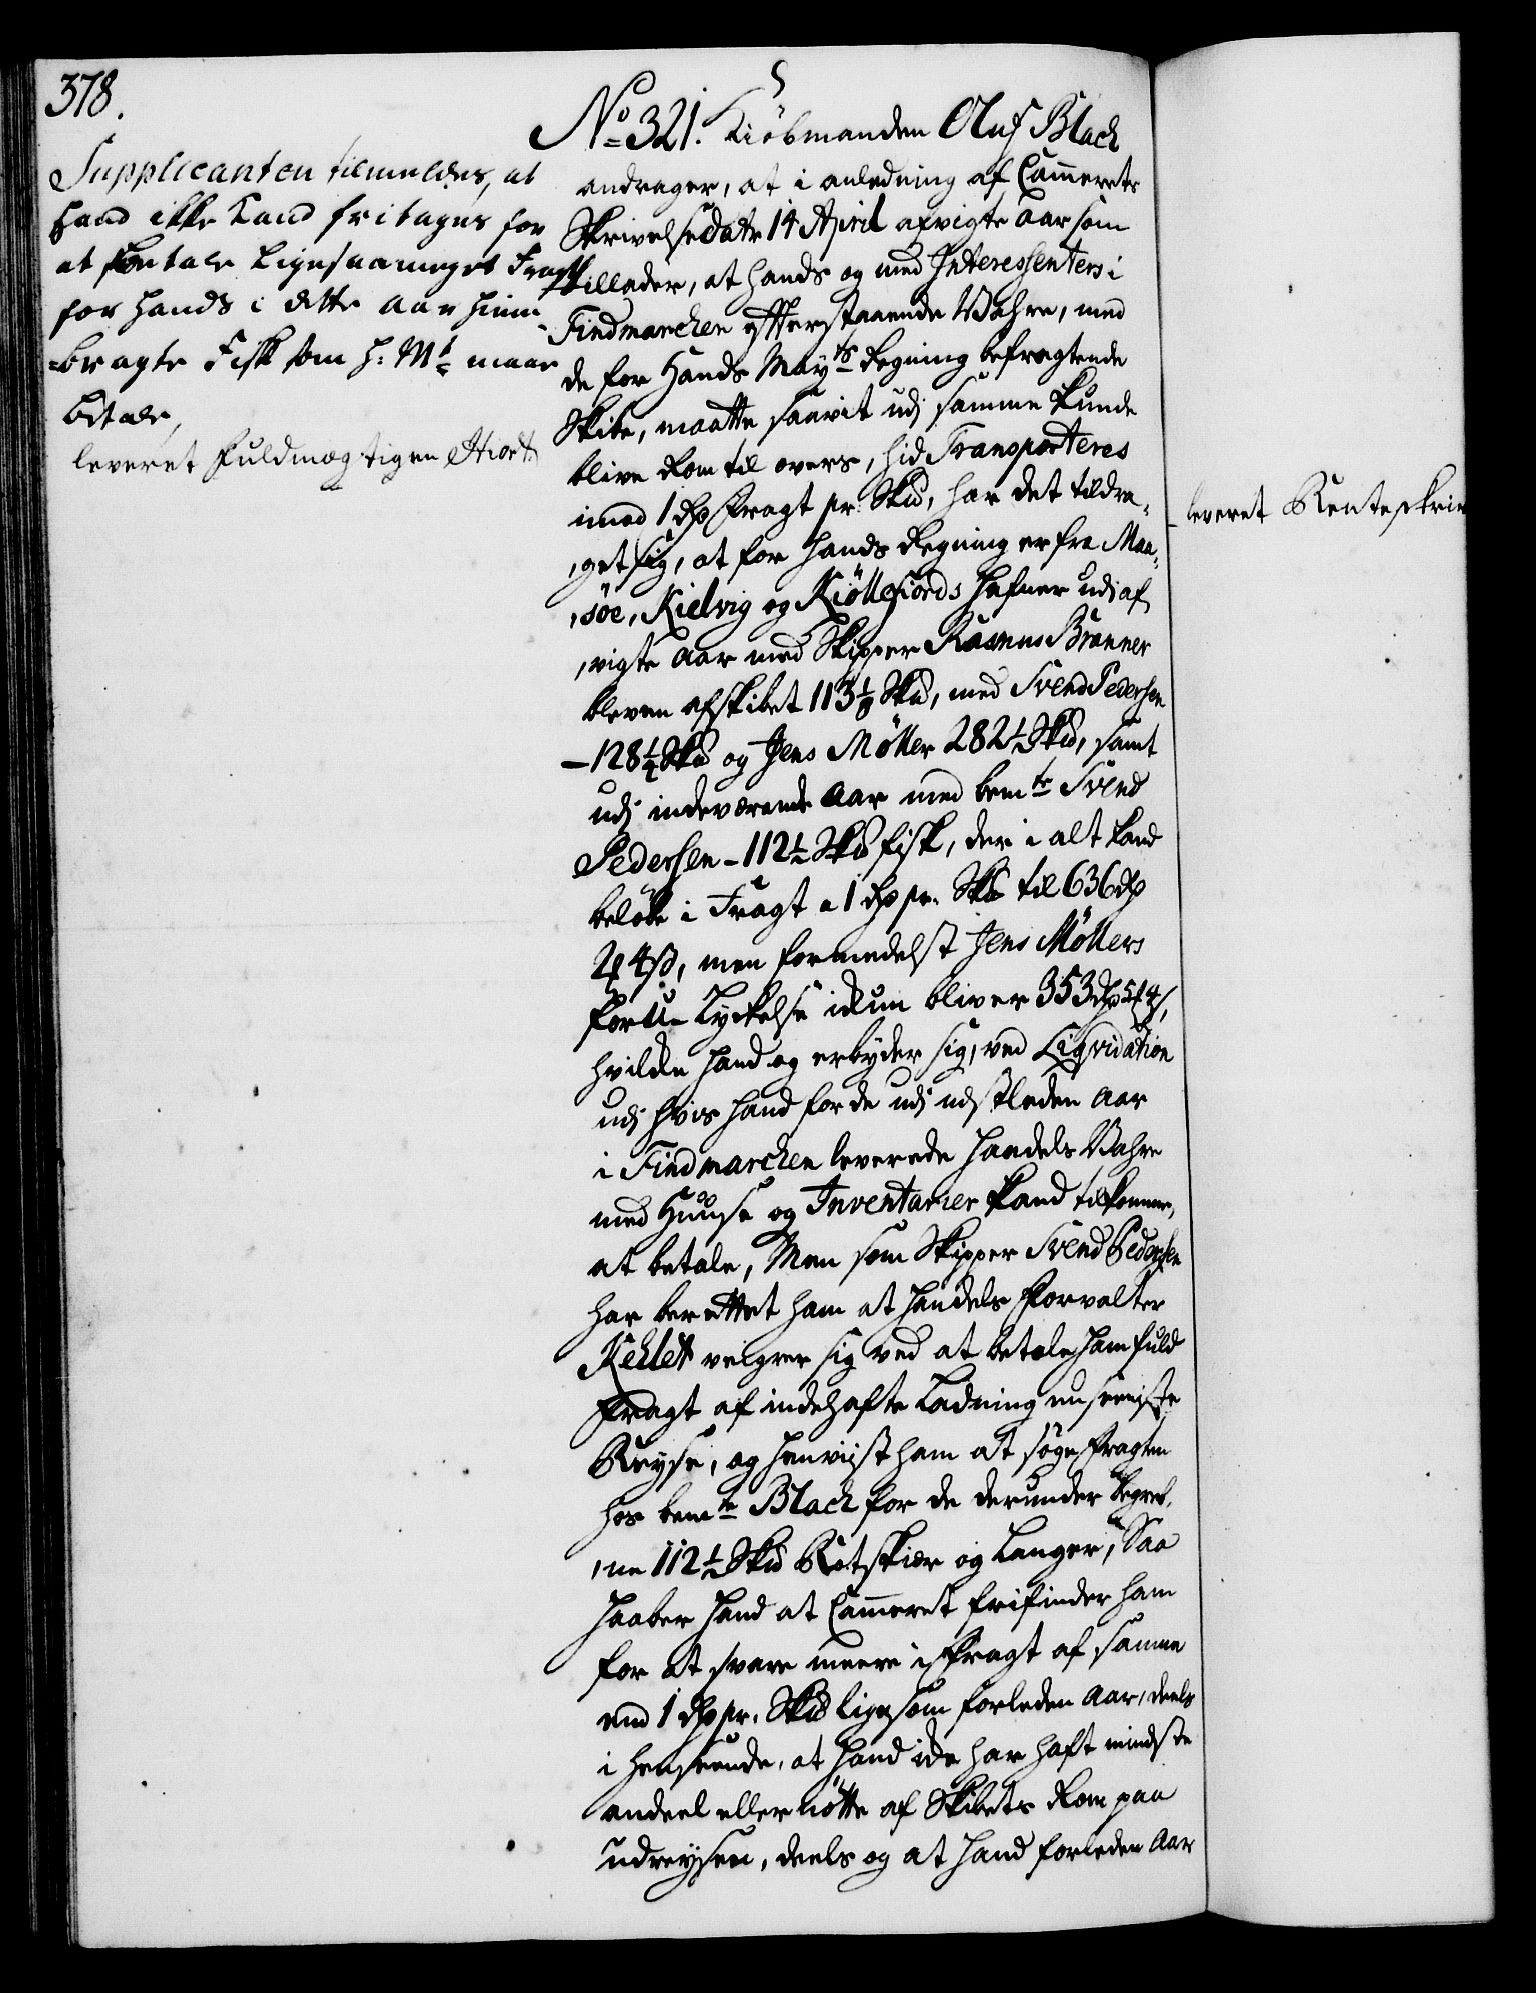 378.
Supplicanten tilmeldes, at
Hand ikke Kand fritages for
at betale ligesaameget Fragt
for hands i dette Aar hiem-
-bragte Fisk som H: Mt maae
betale,
leveret Fuldmægtigen Hiort
No 321. Kiöbmanden Oluf Black
andrager, at i anledning af Cammerets
Skrivelse dat. 14 April afvigte Aar som
tillader, at hands og med Interessenters i
Findmarchen effterstaaende Vahre, med
de for Hands Mayts Regning befragtende
Skibe, maatte saavit udj samme kunde
blive Rom til overs, hid Transporteres
imod 1 rdr Fragt pr Skud, har det tildra-
,get sig, at for hands Regning er fra Maa-
,söe, Kielvig og Kiöllefiords Hafner udi af-
,vigte Aar med Skipper Rasmus Brønner
bleven afskibet 113 1/8 Skud, med Svend Pedersen
- 128 1/4 Skud og Jens Möller 282 1/2 Skud, samt
udj indeværende Aar med bemte Svend
Pedersen - 112 1/2 Skud fisk, der i alt kand
belöbe i Fragt a 1 rdr pr. Skud til 636 rdr
2 mk 4 s, men formedelst Jens Möllers
foru-Lyckelse ickun bliver 353 rdr 5 mk 4 s,
hvilcke hand og erbyder sig, ved Liqvidation
udj hvis hand for de udj nestleden Aar
i Findmarchen leverede Handels Vahre
med Huuse og Inventarier kand tilkomme,
at betale, Men som Skipper Svend Pedersen
har berettet ham at Handels Forvalter
Kehlet veigrer sig ved at betale ham fuld
Fragt af indehafte Ladning nu seeniste
Reyse, og henviist ham at söge Fragten
hos bemte Black for de derunder begreb-
,ne 112 1/2 Skud Rotskier og Langer, Saa
haaber hand at Cammeret frifinder ham
for at svare meere i Fragt af samme
end 1 rdr pr. Skud ligesom forleden Aar, deels
i henseende, at hand icke har haft mindste
andeel eller nötte af Skibets Rom paa
udreysen, deels og at hand forleden Aar
leveret Renteskriv